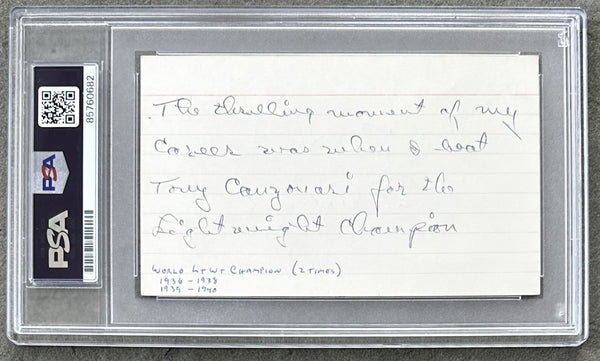 PSA
85760682
PSA
.The thrilling moment of my
Career was when I beat
Tony Canzonari for the
Lightweight Champion
WORLD LT WT CHAMPION (2 TIMES)
1936 - 1938
1939 - 1940